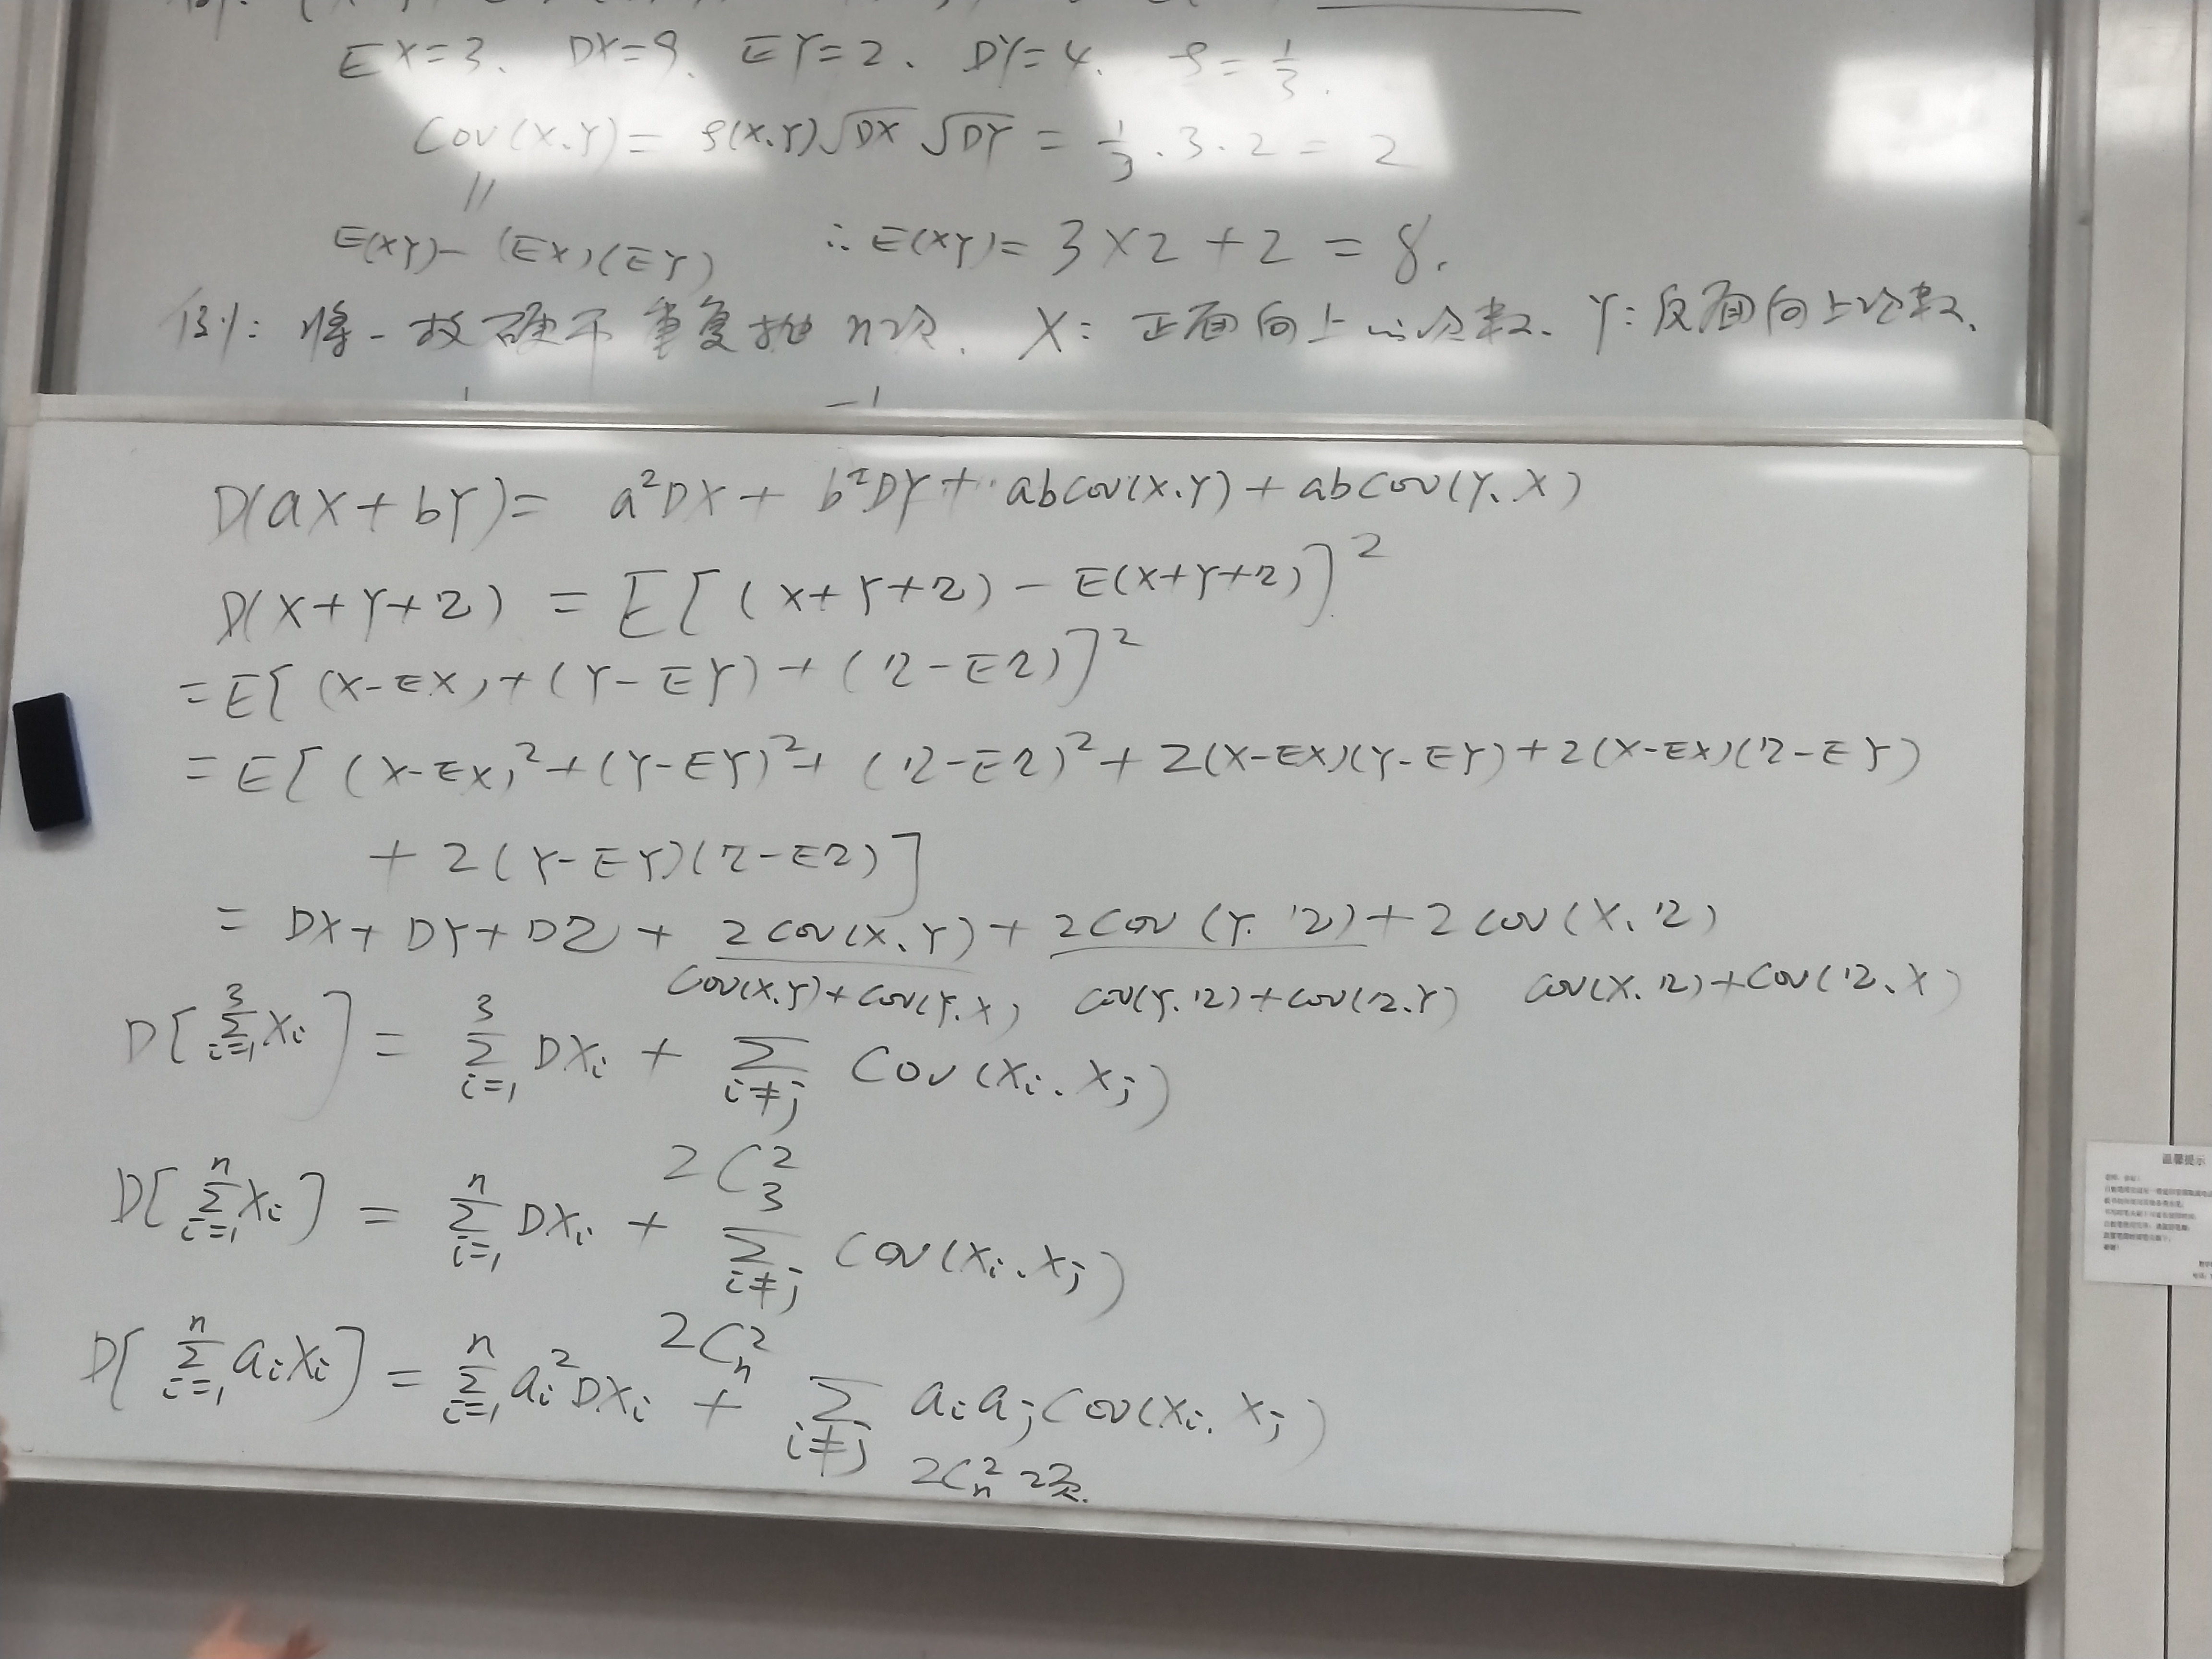 EX=3、 DX=9、 EY=2、 DY=4、 ρ=1/3.
Cov(X.Y)= ρ(X.Y)√DX √DY = 1/3 . 3 . 2 = 2
||
E(XY)-(EX)(EY) ∴E(XY)= 3×2+2 = 8.
例: 将一枚硬币重复抛n次. X: 正面向上的次数、Y: 反面向上次数、
D(aX+bY)= a²DX+ b²DY+ abCov(X.Y)+abCov(Y、X)
D(X+Y+Z) = E[(X+Y+Z)-E(X+Y+Z)]²
=E[(X-EX)+(Y-EY)+(Z-EZ)]²
=E[(X-EX)²+(Y-EY)²+(Z-EZ)²+2(X-EX)(Y-EY)+2(X-EX)(Z-EY)
+2(Y-EY)(Z-EZ)]
= DX+DY+DZ+ 2Cov(X、Y)+2Cov(Y.Z)+2Cov(X、Z)
Cov(X.Y)+Cov(Y.X) Cov(Y.Z)+Cov(Z.Y) Cov(X.Z)+Cov(Z、X)
D[∑_{i=1}^{3} Xi] = ∑_{i=1}^{3} DXi + ∑_{i≠j} Cov(Xi、Xj)
2C_3^2
D[∑_{i=1}^{n} Xi] = ∑_{i=1}^{n} DXi + ∑_{i≠j} Cov(Xi、Xj)
2C_n^2
D[∑_{i=1}^{n} aiXi] = ∑_{i=1}^{n} ai²DXi + ∑_{i≠j} aiajCov(Xi、Xj)
2C_n^2
温馨提示